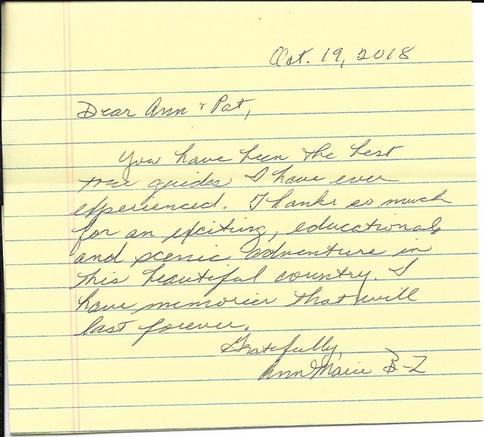 Oct. 19, 2018
Dear Ann & Pat,
You have been the best
tour guides I have ever
experienced. Thanks so much
for an exciting, educational,
and scenic adventure in
this beautiful country. I
have memories that will
last forever.
Gratefully,
Ann Marie B-Z